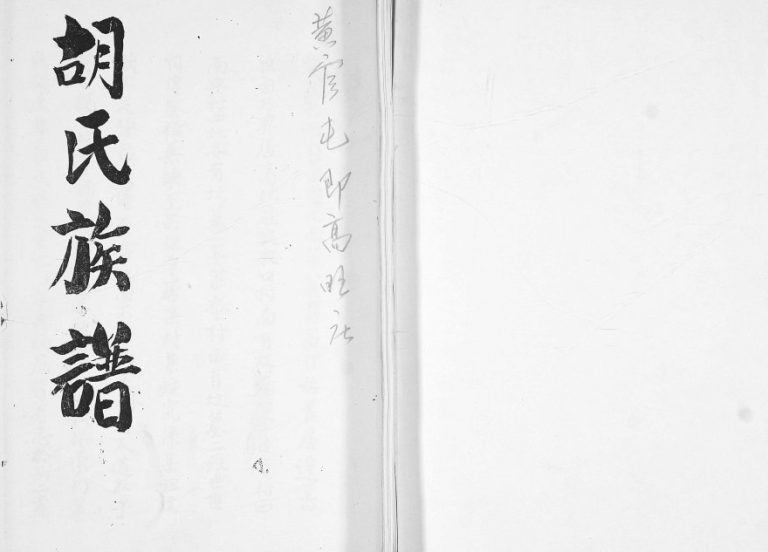 黄官屯即高旺庄
胡氏族譜